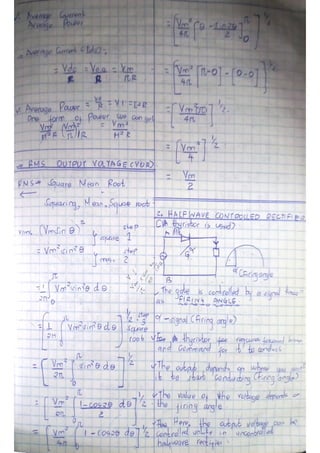 Average Current
Average Power
→ Average Current = Idc:
= Vdc = Vm
R R
Average Power = V² = VI = I²R
R
One form of Power we can get
= Vm²
π²R
→ RMS OUTPUT VOLTAGE (VOR)
RMS → Square Mean Root
Squaring, Mean, Square root.
rms (Vm Sin θ)² } square step 1
= Vm² sin² θ } mean step 2
= 1/2π ∫ Vm² sin² θ dθ
= [1/2π ∫ Vm² sin² θ dθ]^1/2 step 3 square root
= [Vm²/2π ∫ sin² θ dθ]^1/2
= [Vm²/2π ∫ 1 - cos2θ/2 dθ]^1/2
= [Vm²/4π ∫ 1 - cos2θ dθ]^1/2
= [Vm²/4π [θ - sin2θ/2]]^1/2
= [Vm²/4π [π-0] - [0-0]]^1/2
= [Vm²(π)/4π]^1/2
= [Vm²/4]^1/2
= Vm
2
HALFWAVE CONTROLLED RECTIFIER
(A thyristor is used)
B
α (Firing angle)
The gate is controlled by a signal known
as FIRING ANGLE
α → signal (firing angle)
thyristor
and Command for it to conduct
The output depends on
it to start Conducting (Firing angle)
The value of the voltage depends on
the firing angle
Here, the output voltage can be
Controlled unlike in uncontrolled
halfwave rectifier.